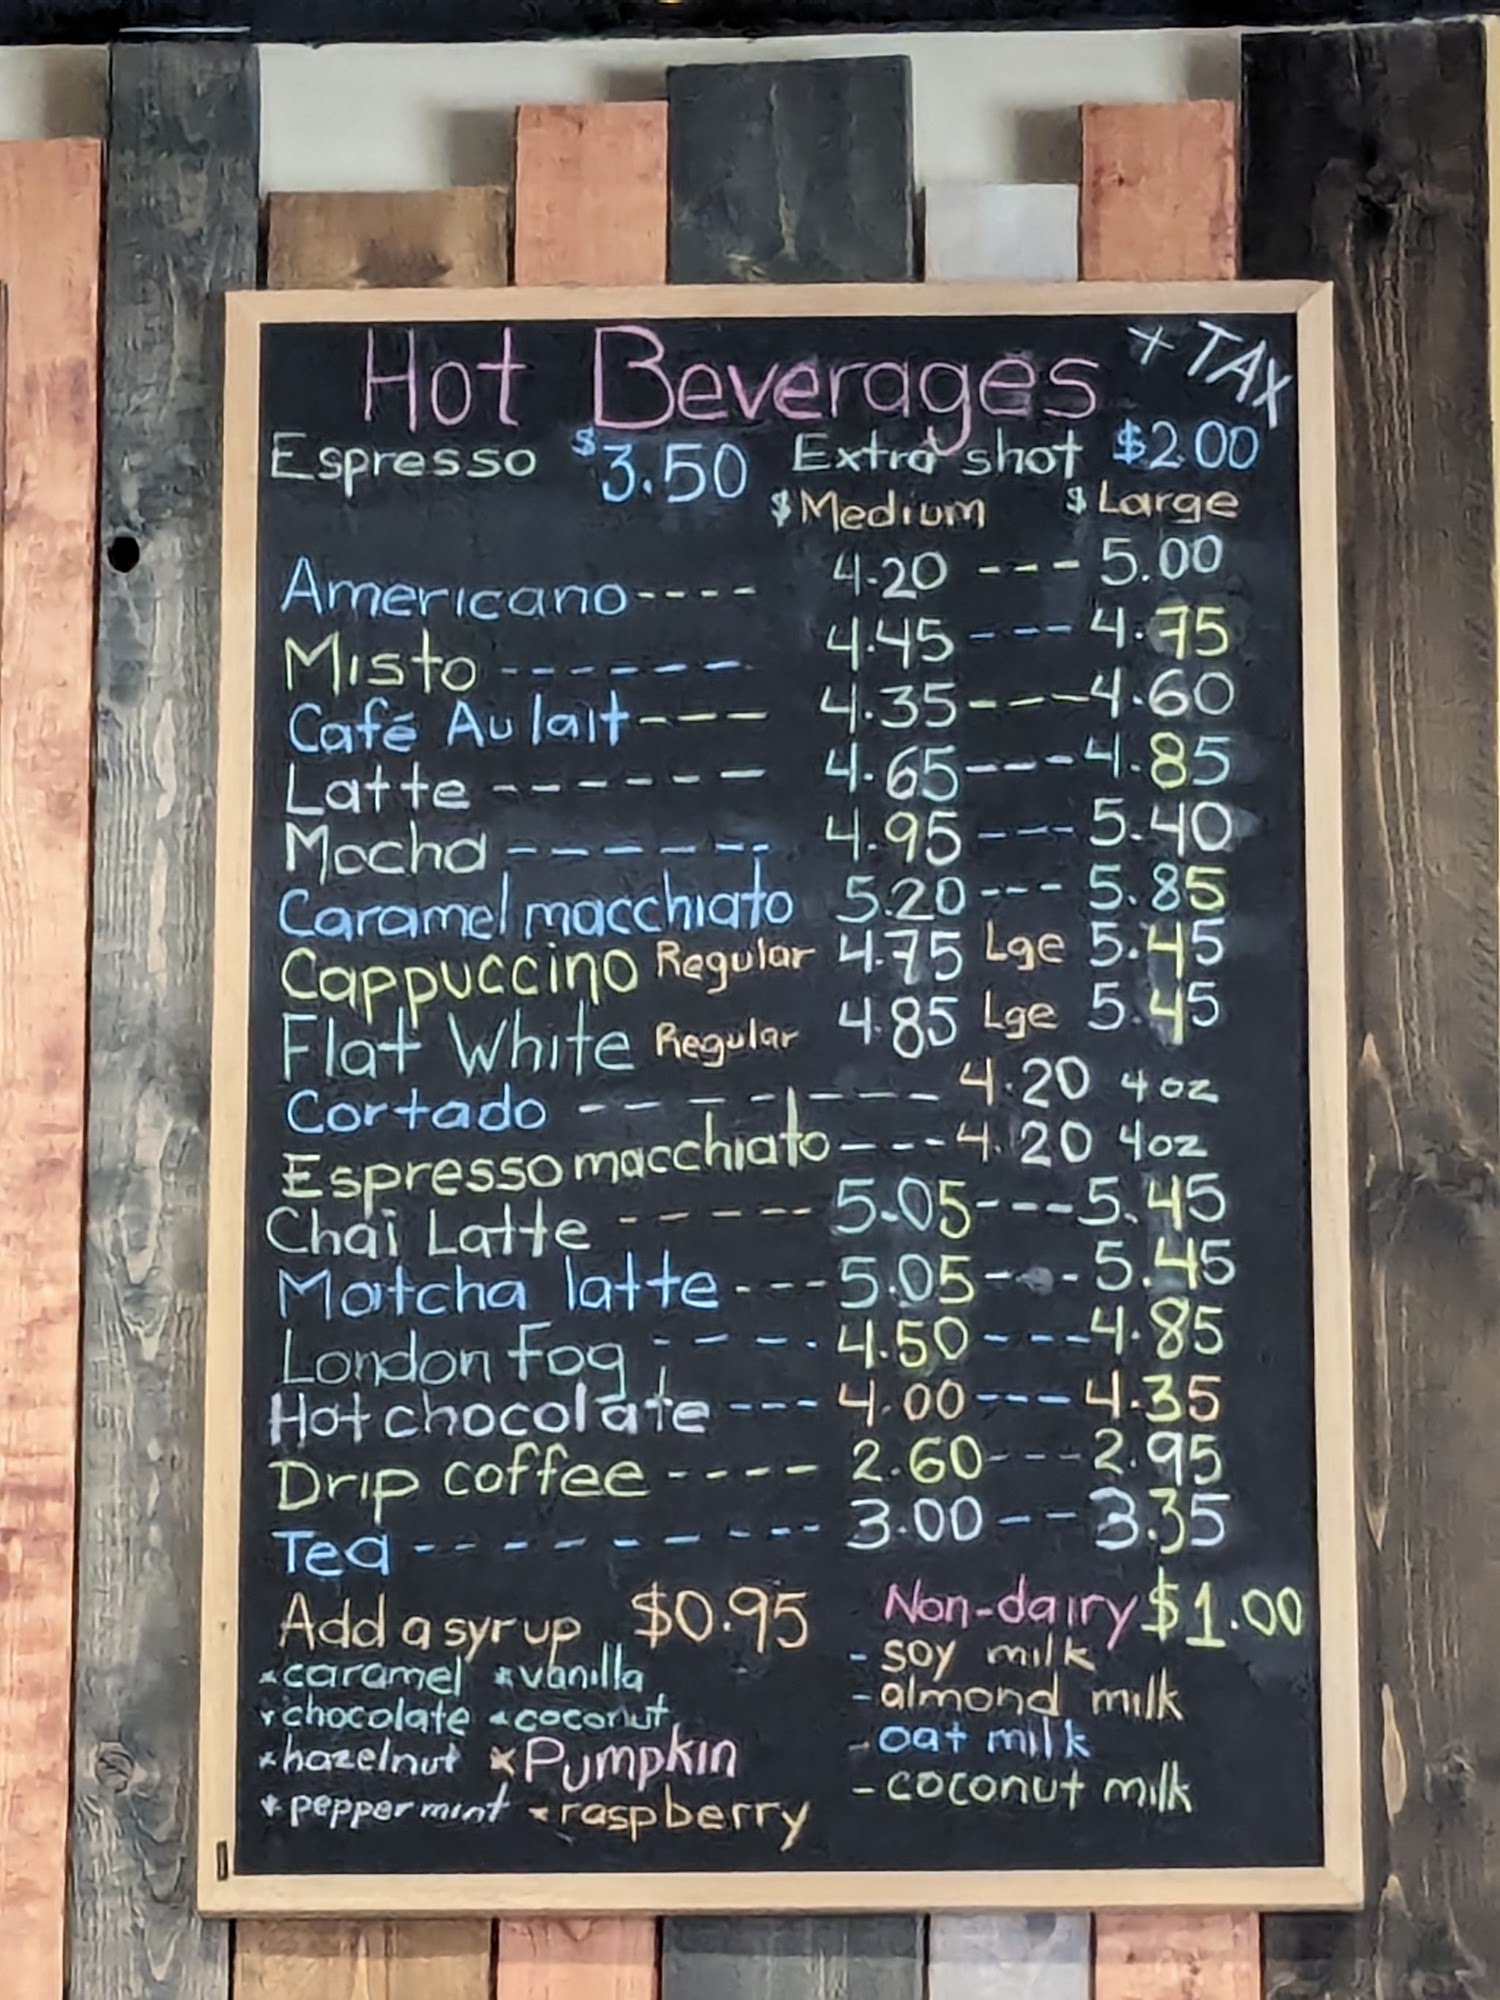 Hot Beverages + TAX
Espresso $3.50 Extra shot $2.00
$ Medium $ Large
Americano ---- 4.20 --- 5.00
Misto ------ 4.45 --- 4.75
Café Au lait ---- 4.35 --- 4.60
Latte ------ 4.65 --- 4.85
Mocha ------ 4.95 --- 5.40
Caramel macchiato 5.20 --- 5.85
Cappuccino Regular 4.75 Lge 5.45
Flat White Regular 4.85 Lge 5.45
Cortado -------- 4.20 4 oz
Espresso macchiato --- 4.20 4oz
Chai Latte ----- 5.05 --- 5.45
Matcha latte --- 5.05 --- 5.45
London Fog ---- 4.50 --- 4.85
Hot chocolate --- 4.00 --- 4.35
Drip coffee ---- 2.60 --- 2.95
Tea --------- 3.00 -- 3.35
Add a syrup $0.95
* caramel * vanilla
* chocolate * coconut
* hazelnut * Pumpkin
* peppermint * raspberry
Non-dairy $1.00
- soy milk
- almond milk
- oat milk
- coconut milk